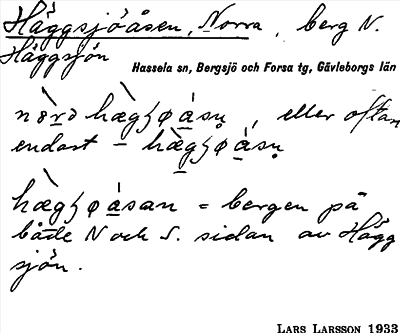 Häggsjöåsen, Norra, berg N.
Häggsjön
Hassela sn, Bergsjö och Forsa tg, Gävleborgs län
eller oftast
endast –
= bergen på
både N och S. sidan av Hägg
sjön.
LARS LARSSON 1933